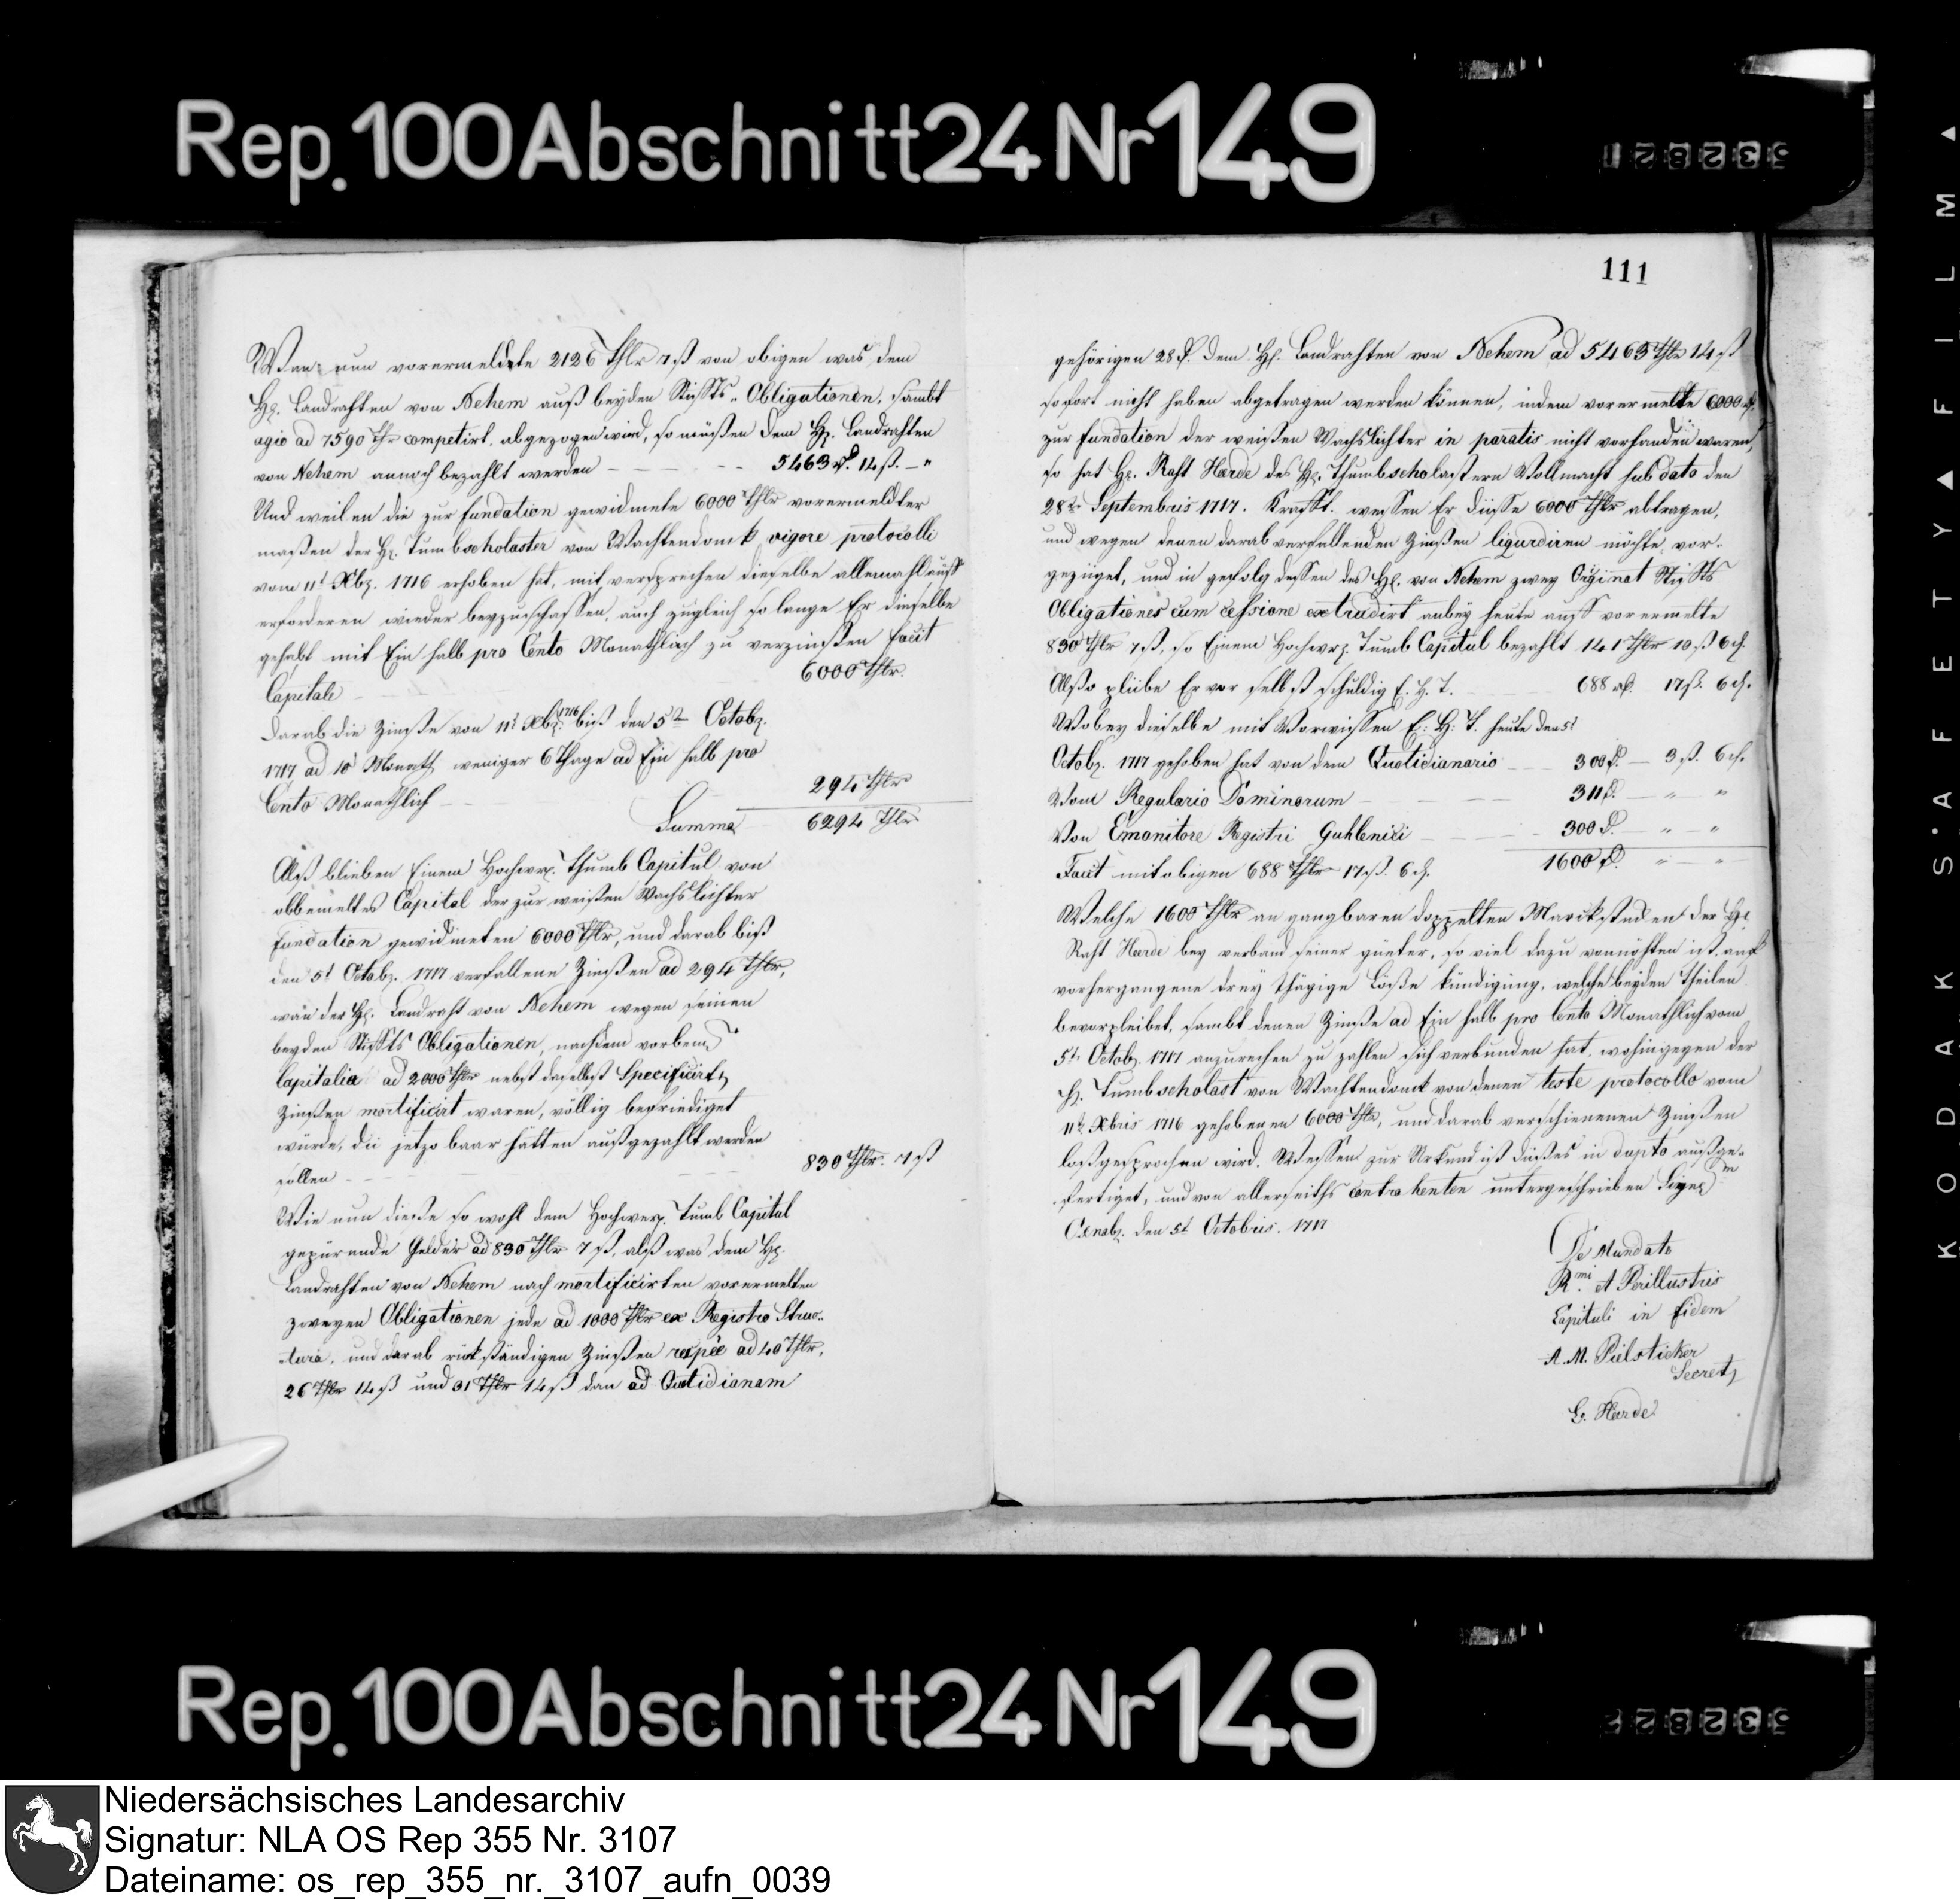 Rep. 100 Abschnitt 24 Nr 149
128235
Wan nun vorermeldete 2126 Thlr 7 ß von obigen was dem
Hr. Landrahten von Nehem auß beyden Stiffts-Obligationen, sambt
agio ad 7590 Thr competirt, abgezogen wird, so müßen dem Hr. Landrahten
von Nehem annoch bezahlt werden - - - 5463 Thlr. 14 ß. - "
Und weilen die zur fundation gewidmete 6000 Thlr vorermeldter
maßen der Hr. Tumbscholaster von Wachtendonck vigore protocolli
vom 11t Xbr. 1716 erhoben hat, mit versprechen dieselbe allemahl auff
erforderen wieder beyzuschaffen, auch zugleich so lange Er dieselbe
gehabt mit Ein halb pro Cento Monathlich zu verzinßen facit
Capitale - 6000 Thlr.
Darab die Zinße von 11t Xbr. 1716 biß den 5t Octobr.
1717 ad 10 Monath weniger 6 Thage ad Ein halb pro
Cento Monathlich - - 294 Thlr
Summa 6294 Thlr
Alß blieben Einem Hochwr. Thumb Capitul von
obbemeltes Capital der zur weißen Wachslichter
fundation gewidmeten 6000 Thlr, und darab biß
den 5t Octobr. 1717 verfallene Zinßen ad 294 Thlr,
wan der Hr. Landraht von Nehem wegen seinen
beyden Stiffts Obligationen, nachdem vorbem
Capitalia ad 2000 Thlr nebst daselbst Specificirt
Zinßen mortificirt waren, völlig befriediget
würde, die jetzo baar hätten außgezahlt werden
sollen - - - 830 Thlr. 7 ß
Wie nun dieße so wohl dem Hochwer. Tumb Capitul
gepürende Gelder ad 830 Thlr 7 ß, alß was dem Hr.
Landrahten von Nehem nach mortificirten vorermelten
zweyen Obligationen jede ad 1000 Thlr ex Registro Struc-
tura, und darab rückständigen Zinßen respée ad 40 Thlr,
26 Thlr 14 ß und 31 Thlr 14 ß dan ad Quotidianam
111
gehörigen 28 Thlr. dem Hr. Landrahten von Nehem ad 5463 Thlr 14 ß
sofort nicht haben abgetragen werden können, indem vorermelte 6000 Thlr.
zur fundation der weißen Wachslichter in paratis nicht vorhanden waren,
so hat Hr. Raht Harde des Hr. Thumbscholastern Vollmacht sub dato den
28t Septembris 1717. Krafft. wessen Er diesse 6000 Thlr abtragen,
und wegen denen darab verfallenden Zinßen liqurdiren möchte, vor-
gezeiget, und in gefolg dessen des Hr. von Nehem zwey Orginat Stiffts
Obligationes cum cessione extradirt anbey heute auff vorermelte
830 Thlr 7 ß, so Einem Hochwr. Tumb Capitul bezahlt 141 Thlr 10 ß 6 d.
Alßo pliebe Er vor selbst schuldig E. H. T. 688 Thlr. 17 ß. 6 d.
Wobey dieselbe mit Vorwissen E: H: T. heute den 5t
Octobr. 1717 gehoben hat von dem Quotidianario - 300 Thlr. - 3 ß. 6 d.
Vom Regulario Dominorum - - 311 Thlr. - " - "
Von Emonitore Registri Guhlenici - - 300 Thlr. - " - "
Facit mit obigen 688 Thlr 17 ß. 6 d. 1600 Thlr. " - "
Welche 1600 Thlr an gangbaren doppelten Marckstucken der Hr.
Raht Harde bey verband seiner güeter, so viel dazu vonnöhten ist, auf
vorhergangene drey thägige Löße kündigung, welche beyden Theilen
bevorpleibet, sambt denen Zinße ad Ein halb pro Cento Monathlich vom
5t Octobr. 1717 anzurechen zu zahlen sich verbunden hat, wohingegen der
Hr. Tumbscholast von Wachtendonck von denen teste protocollo vom
11t Xbris 1716 gehobenen 6000 Thlr, und darab verschienenen Zinßen
loßgesprochen wird. Wessen zur Urkund ist dießes in duplo außge-
fertiget, und von allerseiths contrahenten untergeschrieben Signm
Osnabr. den 5t Octobris. 1717
De Mandato
Rmi. et Perillustris
Capituli in fidem
A. M. Pielsticker
Secret
E. Harde
Rep. 100 Abschnitt 24 Nr 149
KODAK S'AFETY▲FILM▲
Niedersächsisches Landesarchiv
Signatur: NLA OS Rep 355 Nr. 3107
Dateiname: os_rep_355_nr._3107_aufn_0039